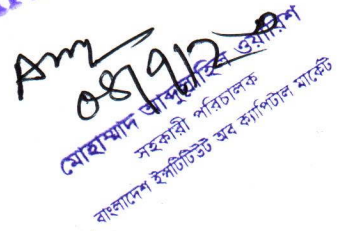 08/9/20
মোহাম্মাদ আব্দুল্লাহিল ওয়ারিশ
সহকারী পরিচালক
বাংলাদেশ ইন্সটিটিউট অব ক্যাপিটাল মার্কেট